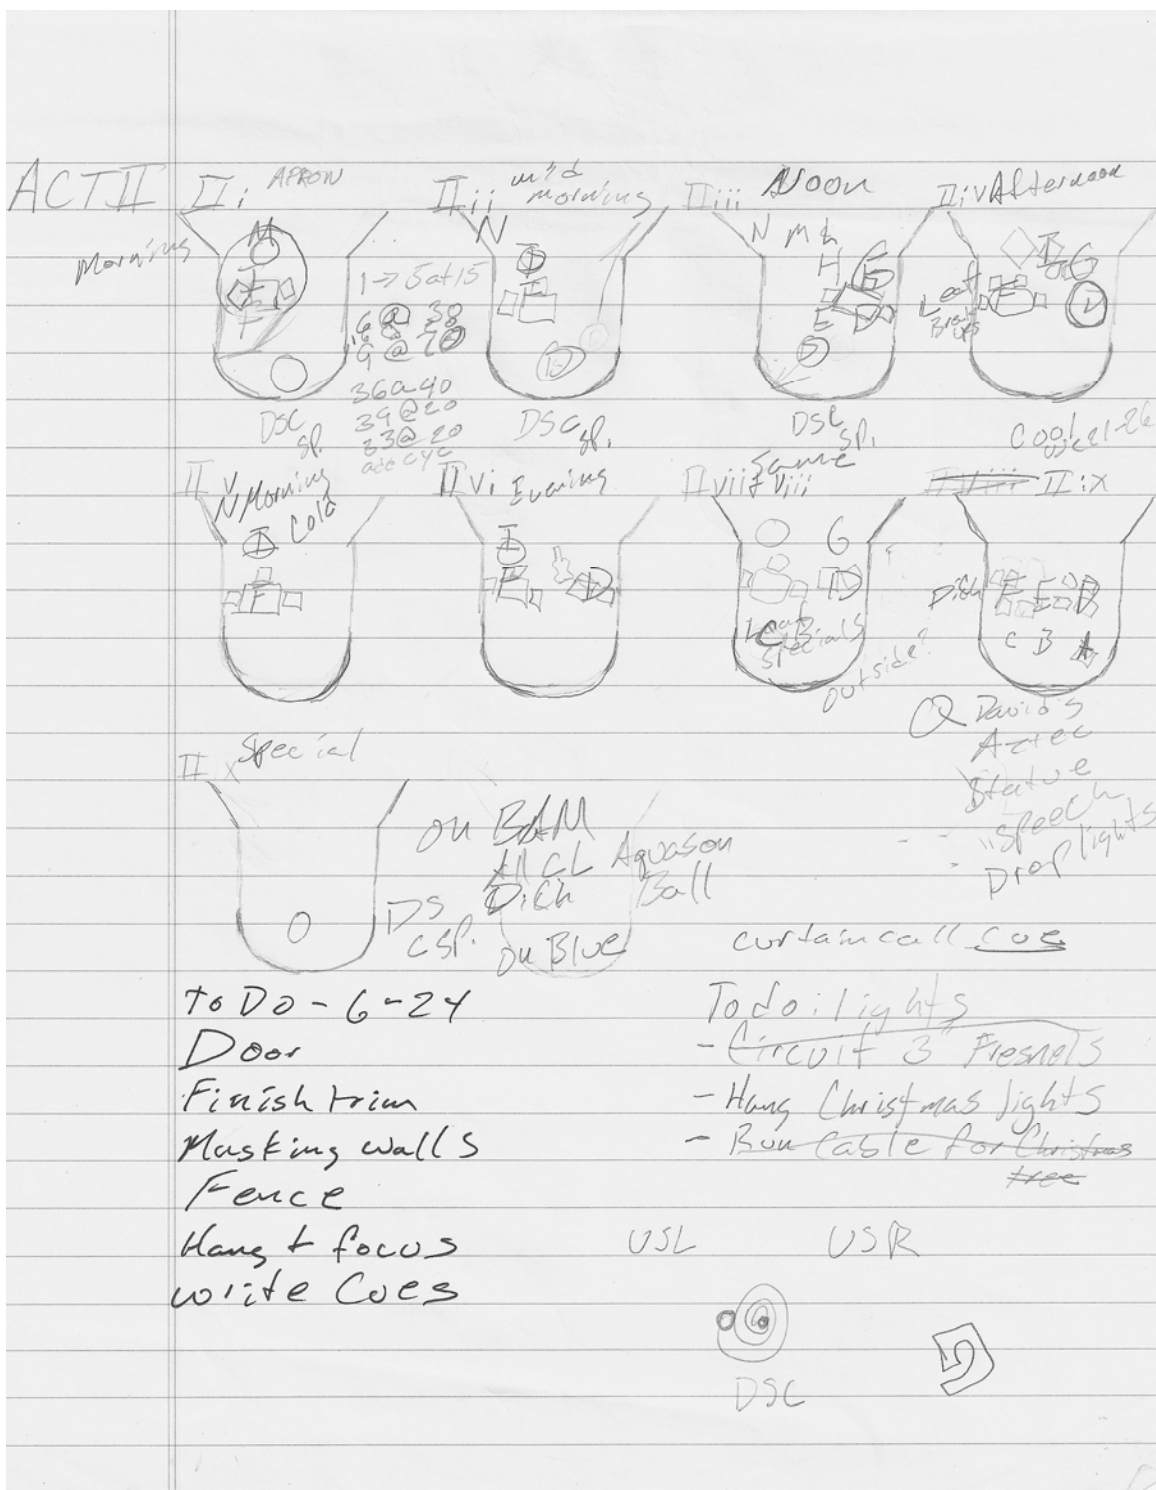 ACT II
II i APRON
Morning
M
I
F
DSC
SP.
1 -> 5 at 15
6 @ 38
9 @ 70
36 @ 40
39 @ 20
33 @ 20
add cyc
II ii mid
morning
N
I
DSC
SP.
II iii Noon
N M L
H G
E D
DSC
SP.
II iv Afternoon
I G
F
Leaf
Break
ups
Cool
use 21-26
II v
N Morning
Cold
I
F
II vi Evening
I
F
D
Same
II vii & viii
G
D
C B
Leaf
specials
outside?
II ix
Dich F E D
C B A
Q David's
Aztec
Statue
"Speech
- Drop lights
II ix Special
DS
C SP.
on BAM
All CL Aquason
Dich Ball
on Blue
curtain call cue
To Do - 6-24
Door
Finish trim
Masking walls
Fence
Hang + focus
write Cues
To do: lights
- Circuit 3" Fresnels
- Hang Christmas lights
- Run Cable for Christmas
tree
USL USR
DSC